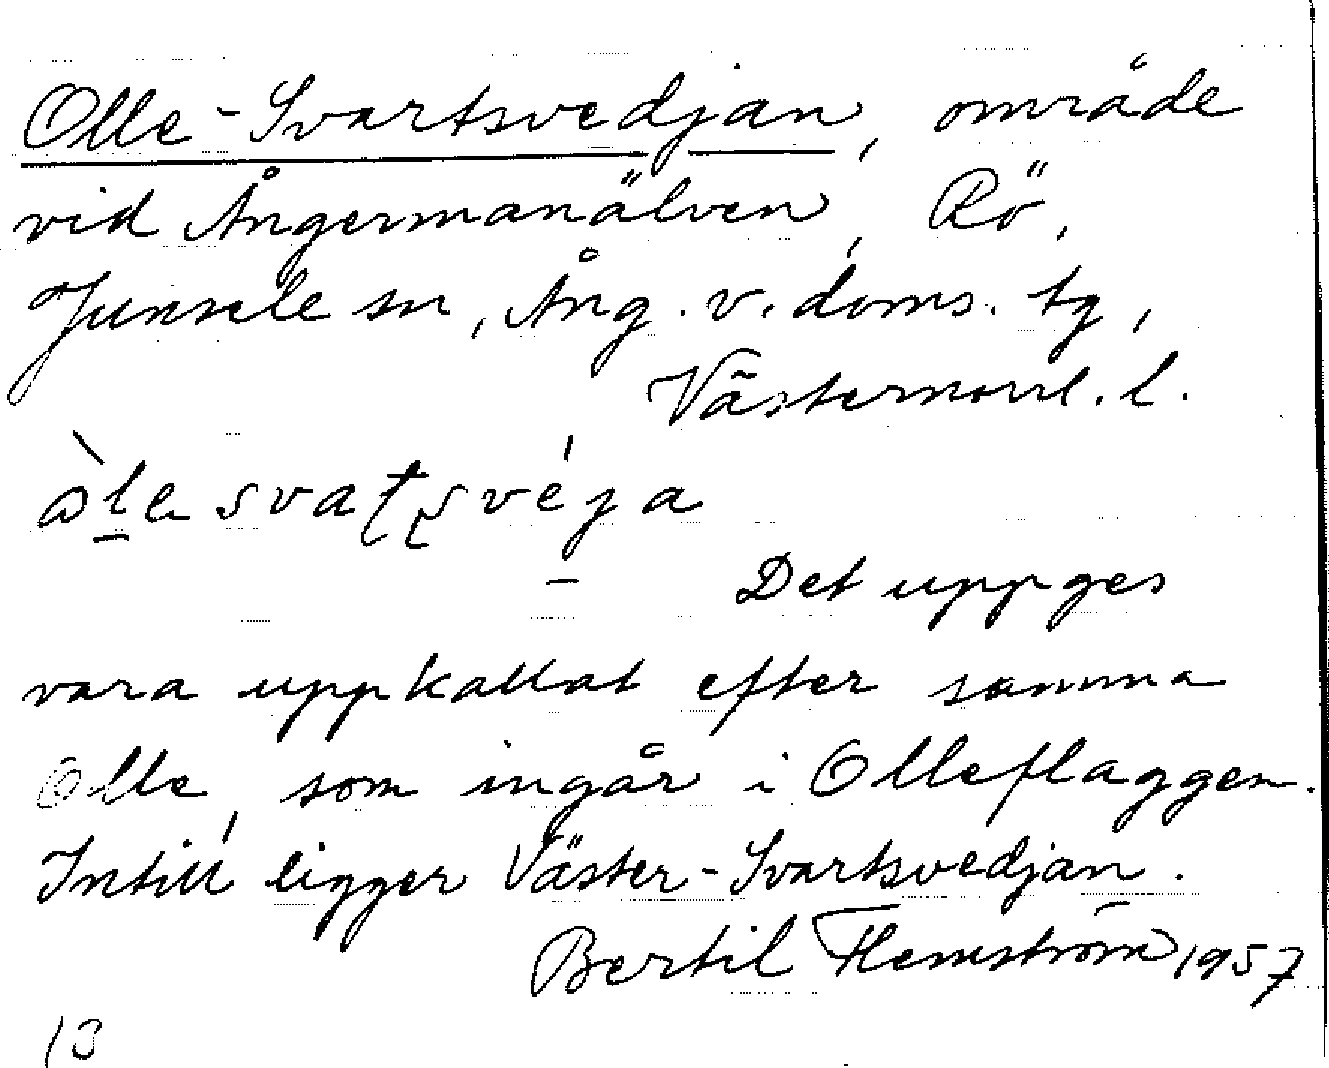 Olle-Svartsvedjan, område
vid Ångermanälven, Rö,
Junsele sn, Ång. v. doms. tg,
Västernorrl. l.
Det uppges
vara uppkallat efter samma
Olle, som ingår i Olleflaggen.
Intill ligger Väster-Svartsvedjan.
Bertil Flemström 1957
13